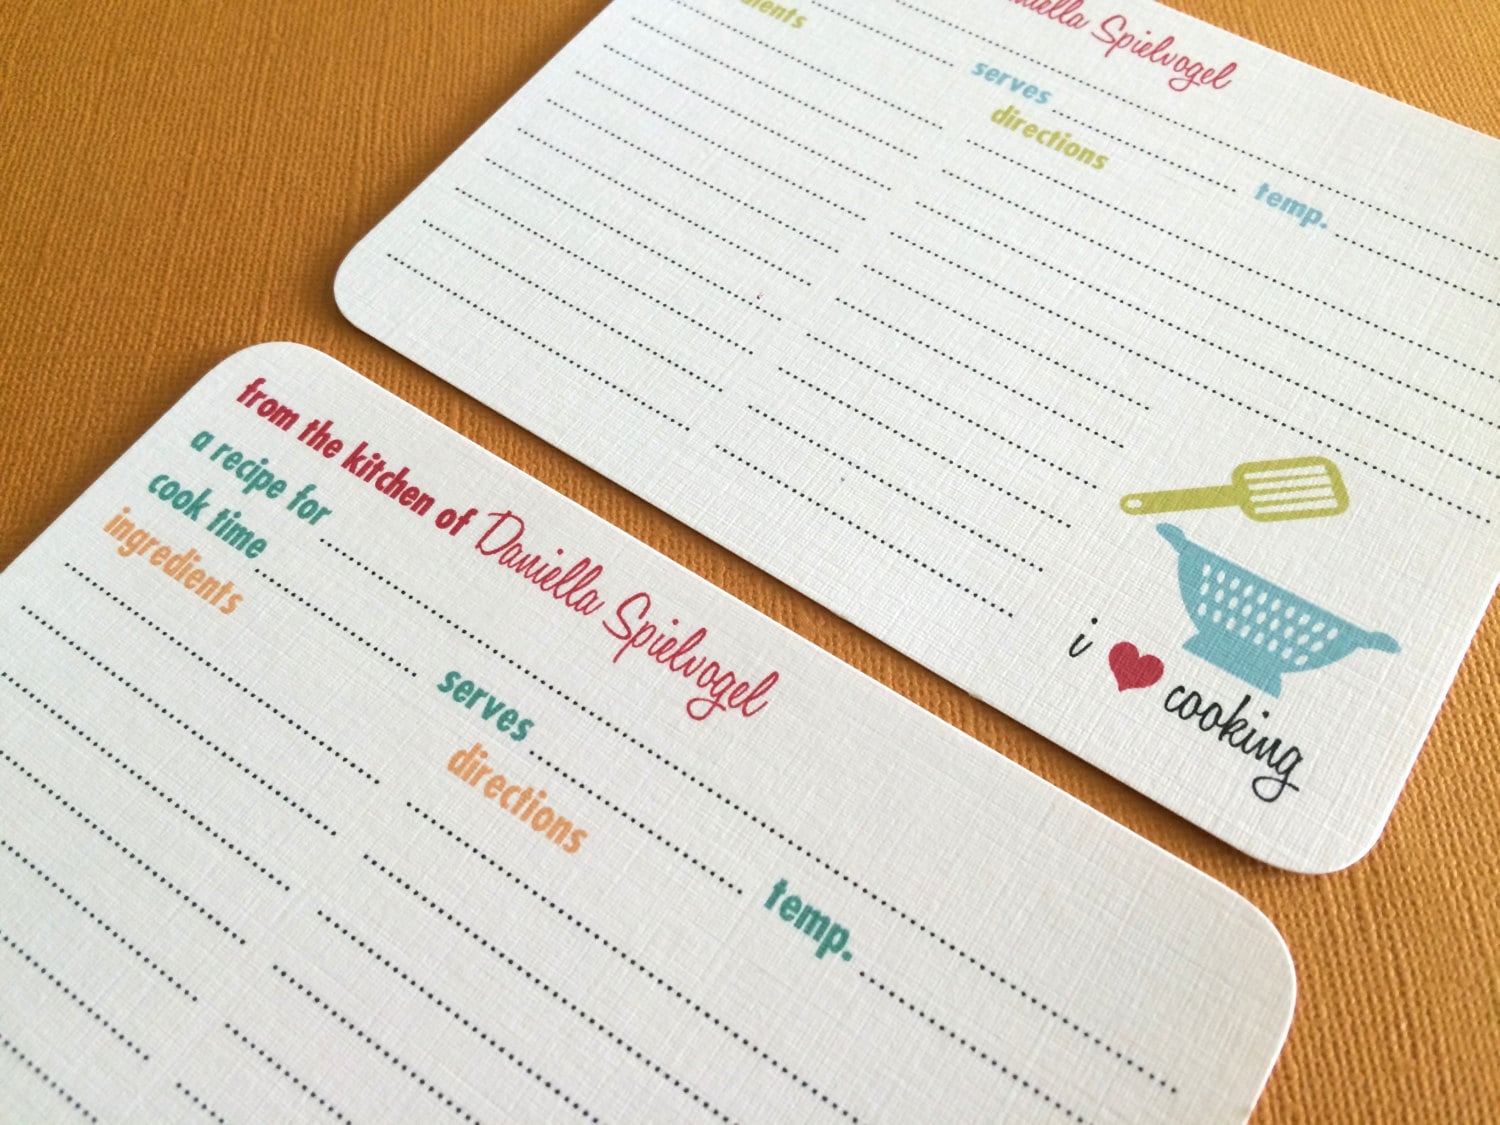 Spielvogel
serves
directions
temp.
i ♥ cooking
from the kitchen of Daniella Spielvogel
a recipe for
cook time
serves
temp.
ingredients
directions